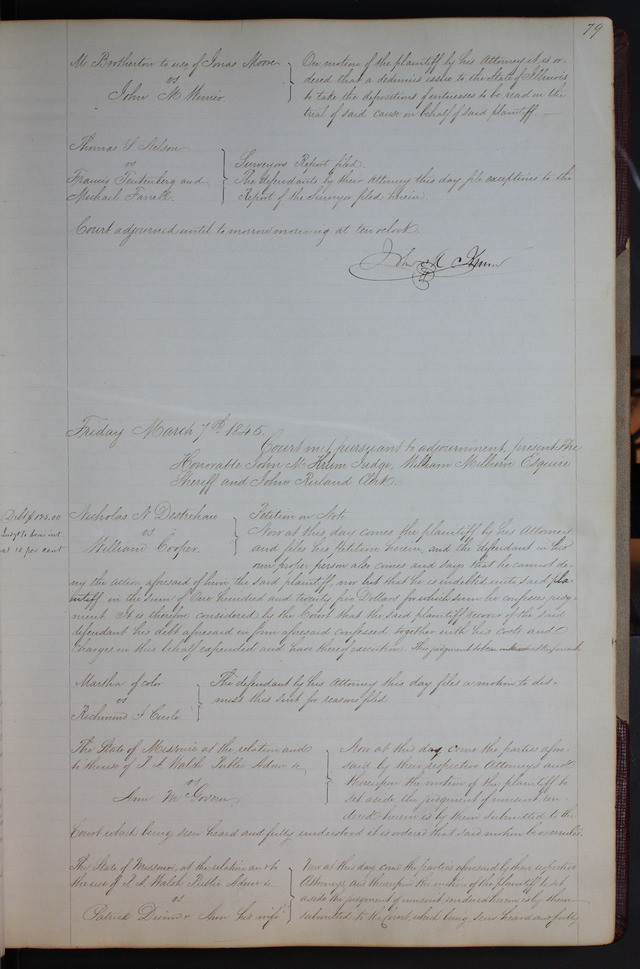 79
M Brotherton to use of Jonas Moore
vs
John M Wimer
On motion of the plaintiff by his Attorney it is or-
dered that a dedimus issue to the State of Illinois
to take the depositions of witnesses to be read on the
trial of said cause on behalf of said plaintiff
Thomas S Nelson
vs
Francis Tentenberg and
Michael Farrell
Surveyors Report filed
The defendants by their Attorney this day file exceptions to the
Report of the Surveyor filed herein
Court adjourned until to morrow morning at ten oclock.
John M Krum
Friday March 7th 1845.
Court met pursuant to adjournment, present the
Honorable John M Krum Judge, William Milburn Esquire
Sheriff and John Ruland Clerk.
Debt $125.00
Judgt to bear int
at 10 per cent
Nicholas N Destrehan
vs
William Cooper.
Petition on Note
Now at this day comes the plaintiff by his Attorney
and files his petition herein, and the defendant in his
own proper person also comes and says that he cannot de-
ny the action aforesaid of him the said plaintiff, nor but that he is indebted unto said pla-
intiff in the sum of One hundred and twenty five Dollars for which sum he confesses judg-
ment It is therefore considered by the Court that the said plaintiff recover of the said
defendant his debt aforesaid in form aforesaid confessed together with his costs and
charges in this behalf expended and have thereof execution. The judgment to bear
Martha of color
vs
Richmond J Curle
The defendant by his Attorney this day files a motion to dis-
miss this suit for reasons filed
The State of Missouri at the relation and
to the use of P A Walsh Public Admr &c
vs
Ann McGovern
Now at this day come the parties afore-
said by their respective Attorneys and
thereupon the motion of the plaintiff to
set aside the judgment of nonsuit ren-
dered herein is by them submitted to the
Court which being seen heard and fully understood it is ordered that said motion be overruled.
The State of Missouri, at the relation and to
the use of P A Walsh Public Admr &c
vs
Patrick & Ann his wife
Now at this day come the parties aforesaid by their respective
Attorneys, and thereupon the motion of the plaintiff to set
aside the judgment of nonsuit rendered herein is by them
submitted to the Court, which being seen heard and fully